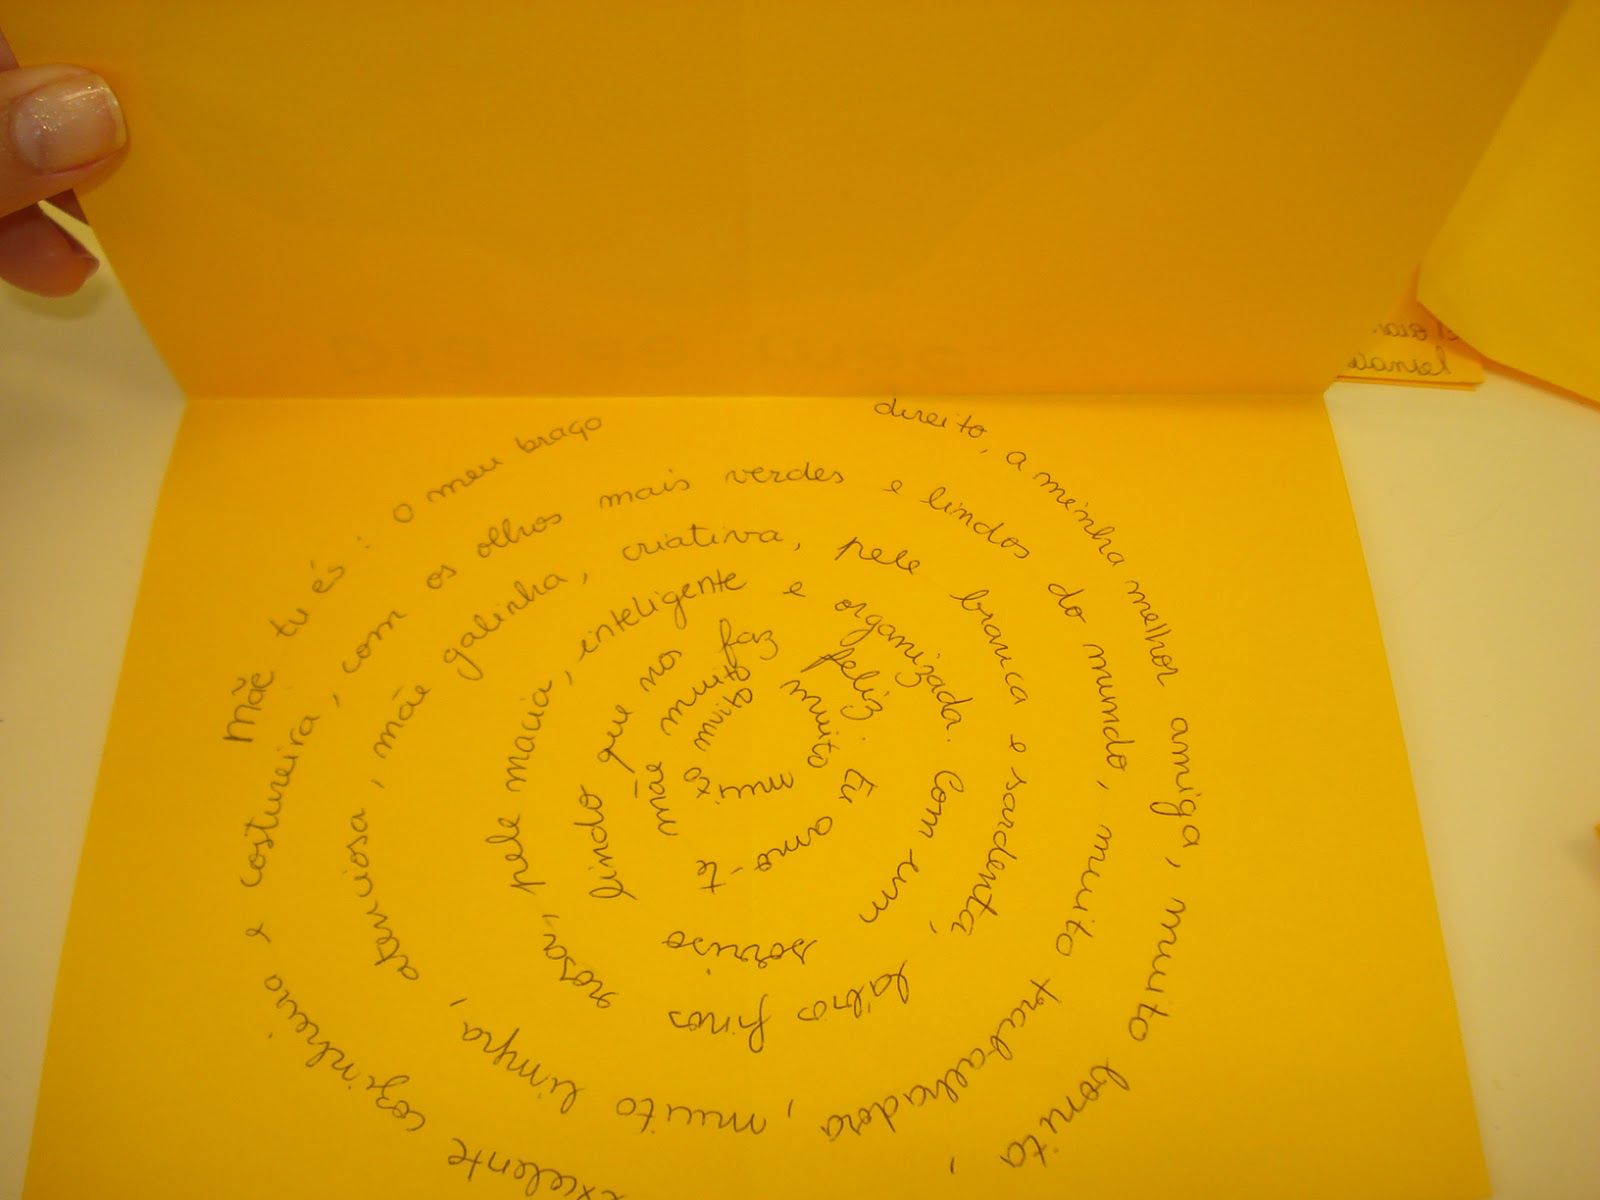 Mãe tu és: o meu braço direito, a minha melhor amiga, muito bonita,
excelente cozinheiro e costureira, com os olhos mais verdes e lindos do mundo, muito trabalhadora,
muito limpa, atenciosa, mãe galinha, criativa, pele branca e sardenta, lábios finos
rosa, pele macia, inteligente e organizada. Com um sorriso
lindo que nos faz feliz. Eu amo-te
mãe muito muito muito muito